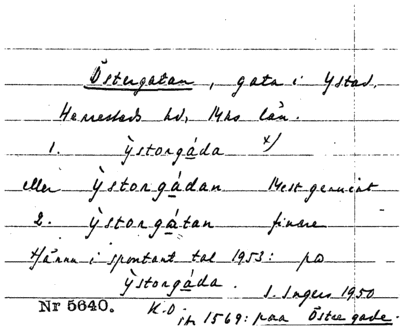 Östergatan, gata i Ystad,
Herrestads hd, Mhs län.
1. Ỳstorgáda x)
eller Ỳstorgádan mest genuint
2. Ỳstorgátan finare
x) ännu i spontant tal 1953: på
Ỳstorgáda.
I. Ingers 1950
Nr 5640. K.D.
1569: paa Östre gade.